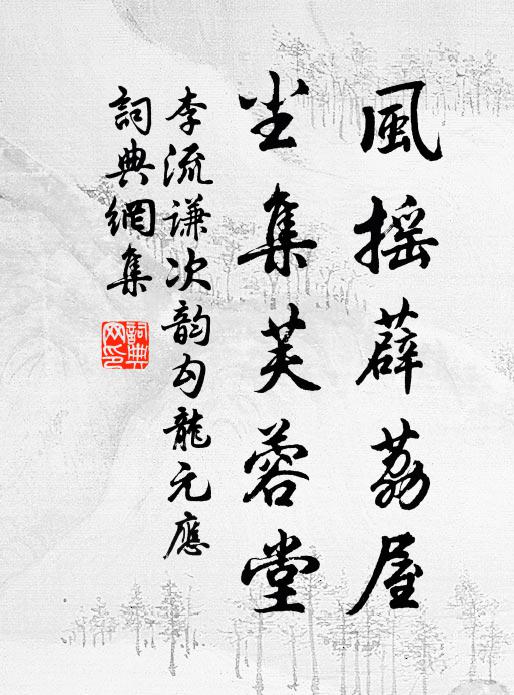 風摇薜荔屋
坐集芙蓉堂
李流谦次韵勾龍元應
詞典網集
詞典
网印